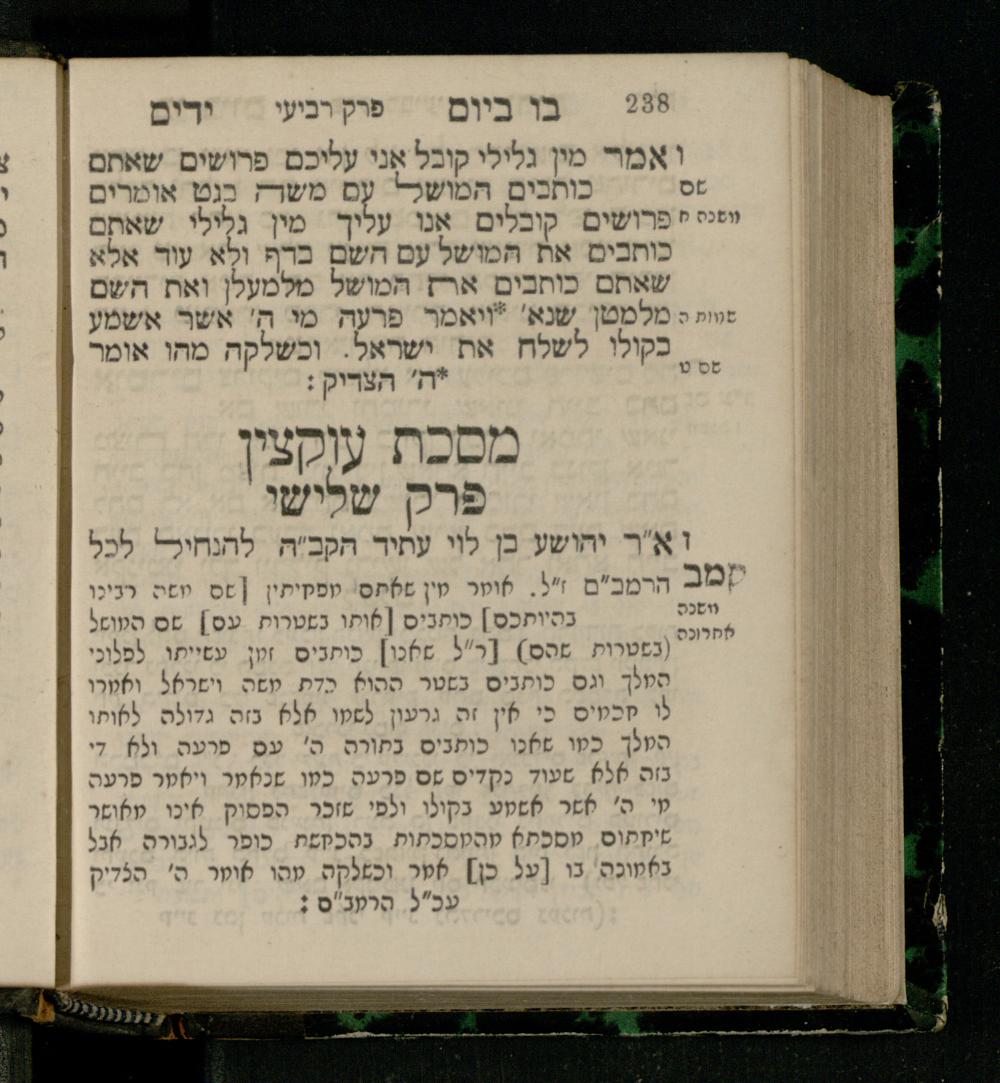 238 בו ביום פרק רביעי ידים
ואמר מין גלילי קובל אני עליכם פרושים שאתם
שם כותבים המושל עם משה בגט אומרים
משנה ח פרושים קובלים אנו עליך מין גלילי שאתם
כותבים את המושל עם השם בדף ולא עוד אלא
שאתם כותבים את המושל מלמעלן ואת השם
שמות ה מלמטן שנא' *ויאמר פרעה מי ה' אשר אשמע
בקולו לשלח את ישראל. וכשלקה מהו אומר
שם ט *ה' הצדיק :
מסכת עוקצין
פרק שלישי
וא"ר יהושע בן לוי עתיד הקב"ה להנחיל לכל
קמב הרמב"ם ז"ל. אומר מין שאתם מפחיתין [שם משה רבינו
משנה אחרונה בהיותכם] כותבים [אותו בשטרות עם] שם המושל
(בשטרות שהם) [ר"ל שאנו] כותבים זמן עשייתו לפלוני
המלך וגם כותבים בשטר ההוא כדת משה וישראל ואמרו
לו חכמים כי אין זה גרעון לשמו אלא בזה גדולה לאותו
המלך כמו שאנו כותבים בתורה ה' עם פרעה ולא די
בזה אלא שעוד נקדים שם פרעה כמו שנאמר ויאמר פרעה
מי ה' אשר אשמע בקולו ולפי שזכר הפסוק אינו מאושר
שיחתום מסכתא מהמסכתות בהכחשת כופר לגבורה אבל
באמונה בו [על כן] אמר וכשלקה מהו אומר ה' הצדיק
עכ"ל הרמב"ם :